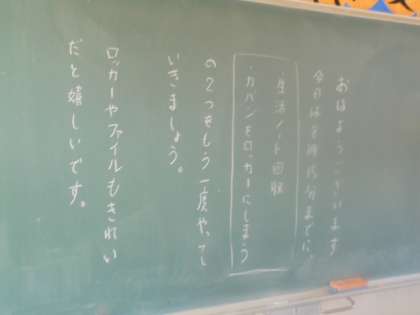 おはようございます
今日は8時15分までに、
・生活ノート回収
・カバンをロッカーにしまう
の2つをもう一度やって
いきましょう。
ロッカーやファイルもきれい
だと嬉しいです。